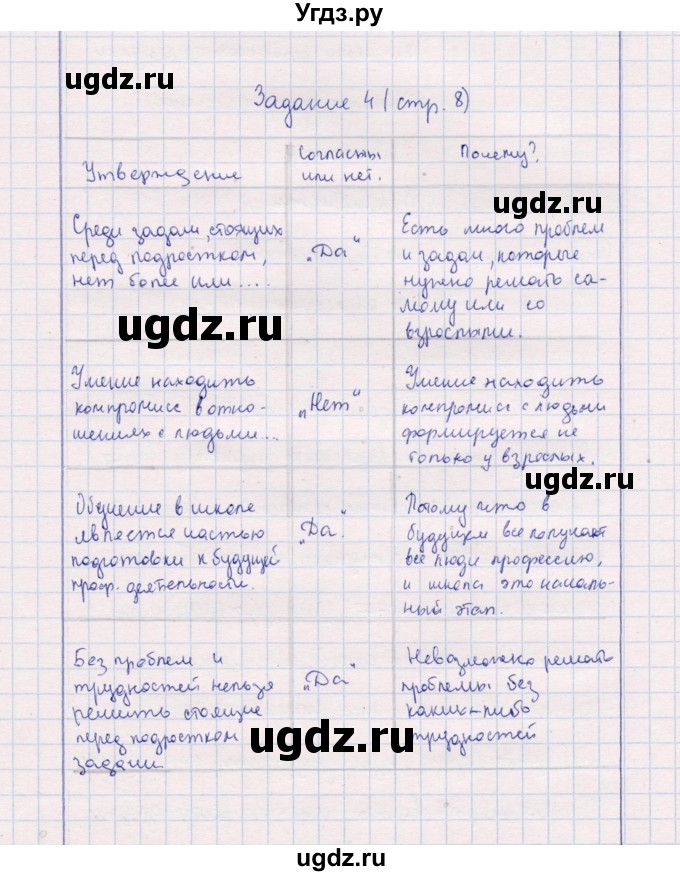 Угдз.ру
ugdz.ru
Задание 4 (стр. 8)
Утверждение
Согласты
или нет.
Почему?
Среди задач, стоящих
перед подростком,
нет более или....
„Да“
Есть много проблем
и задач, которые
нужно решать са-
мому или со
взрослыми.
ugdz.ru
ugdz.ru
Умение находить
компромисс в отно-
шениях с людьми...
„Нет“
Умение находить
компромисс с людьми
формируется не
только у взрослых.
ugdz.ru
Обучение в школе
является частью
подготовки к будущей
проф. деятельности.
„Да“.
Потому что в
будущем все получают
все люди профессию,
и школа это началь-
ный этап.
Без проблем и
трудностей нельзя
решить стоящие
перед подростком
задачи.
„Да“
Невозможно решать
проблемы без
каких-либо
трудностей
ugdz.ru
ugdz.ru
ugdz.ru